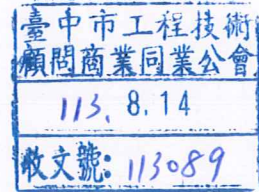 臺中市工程技術
顧問商業同業公會
113. 8. 14
收文號: 113089